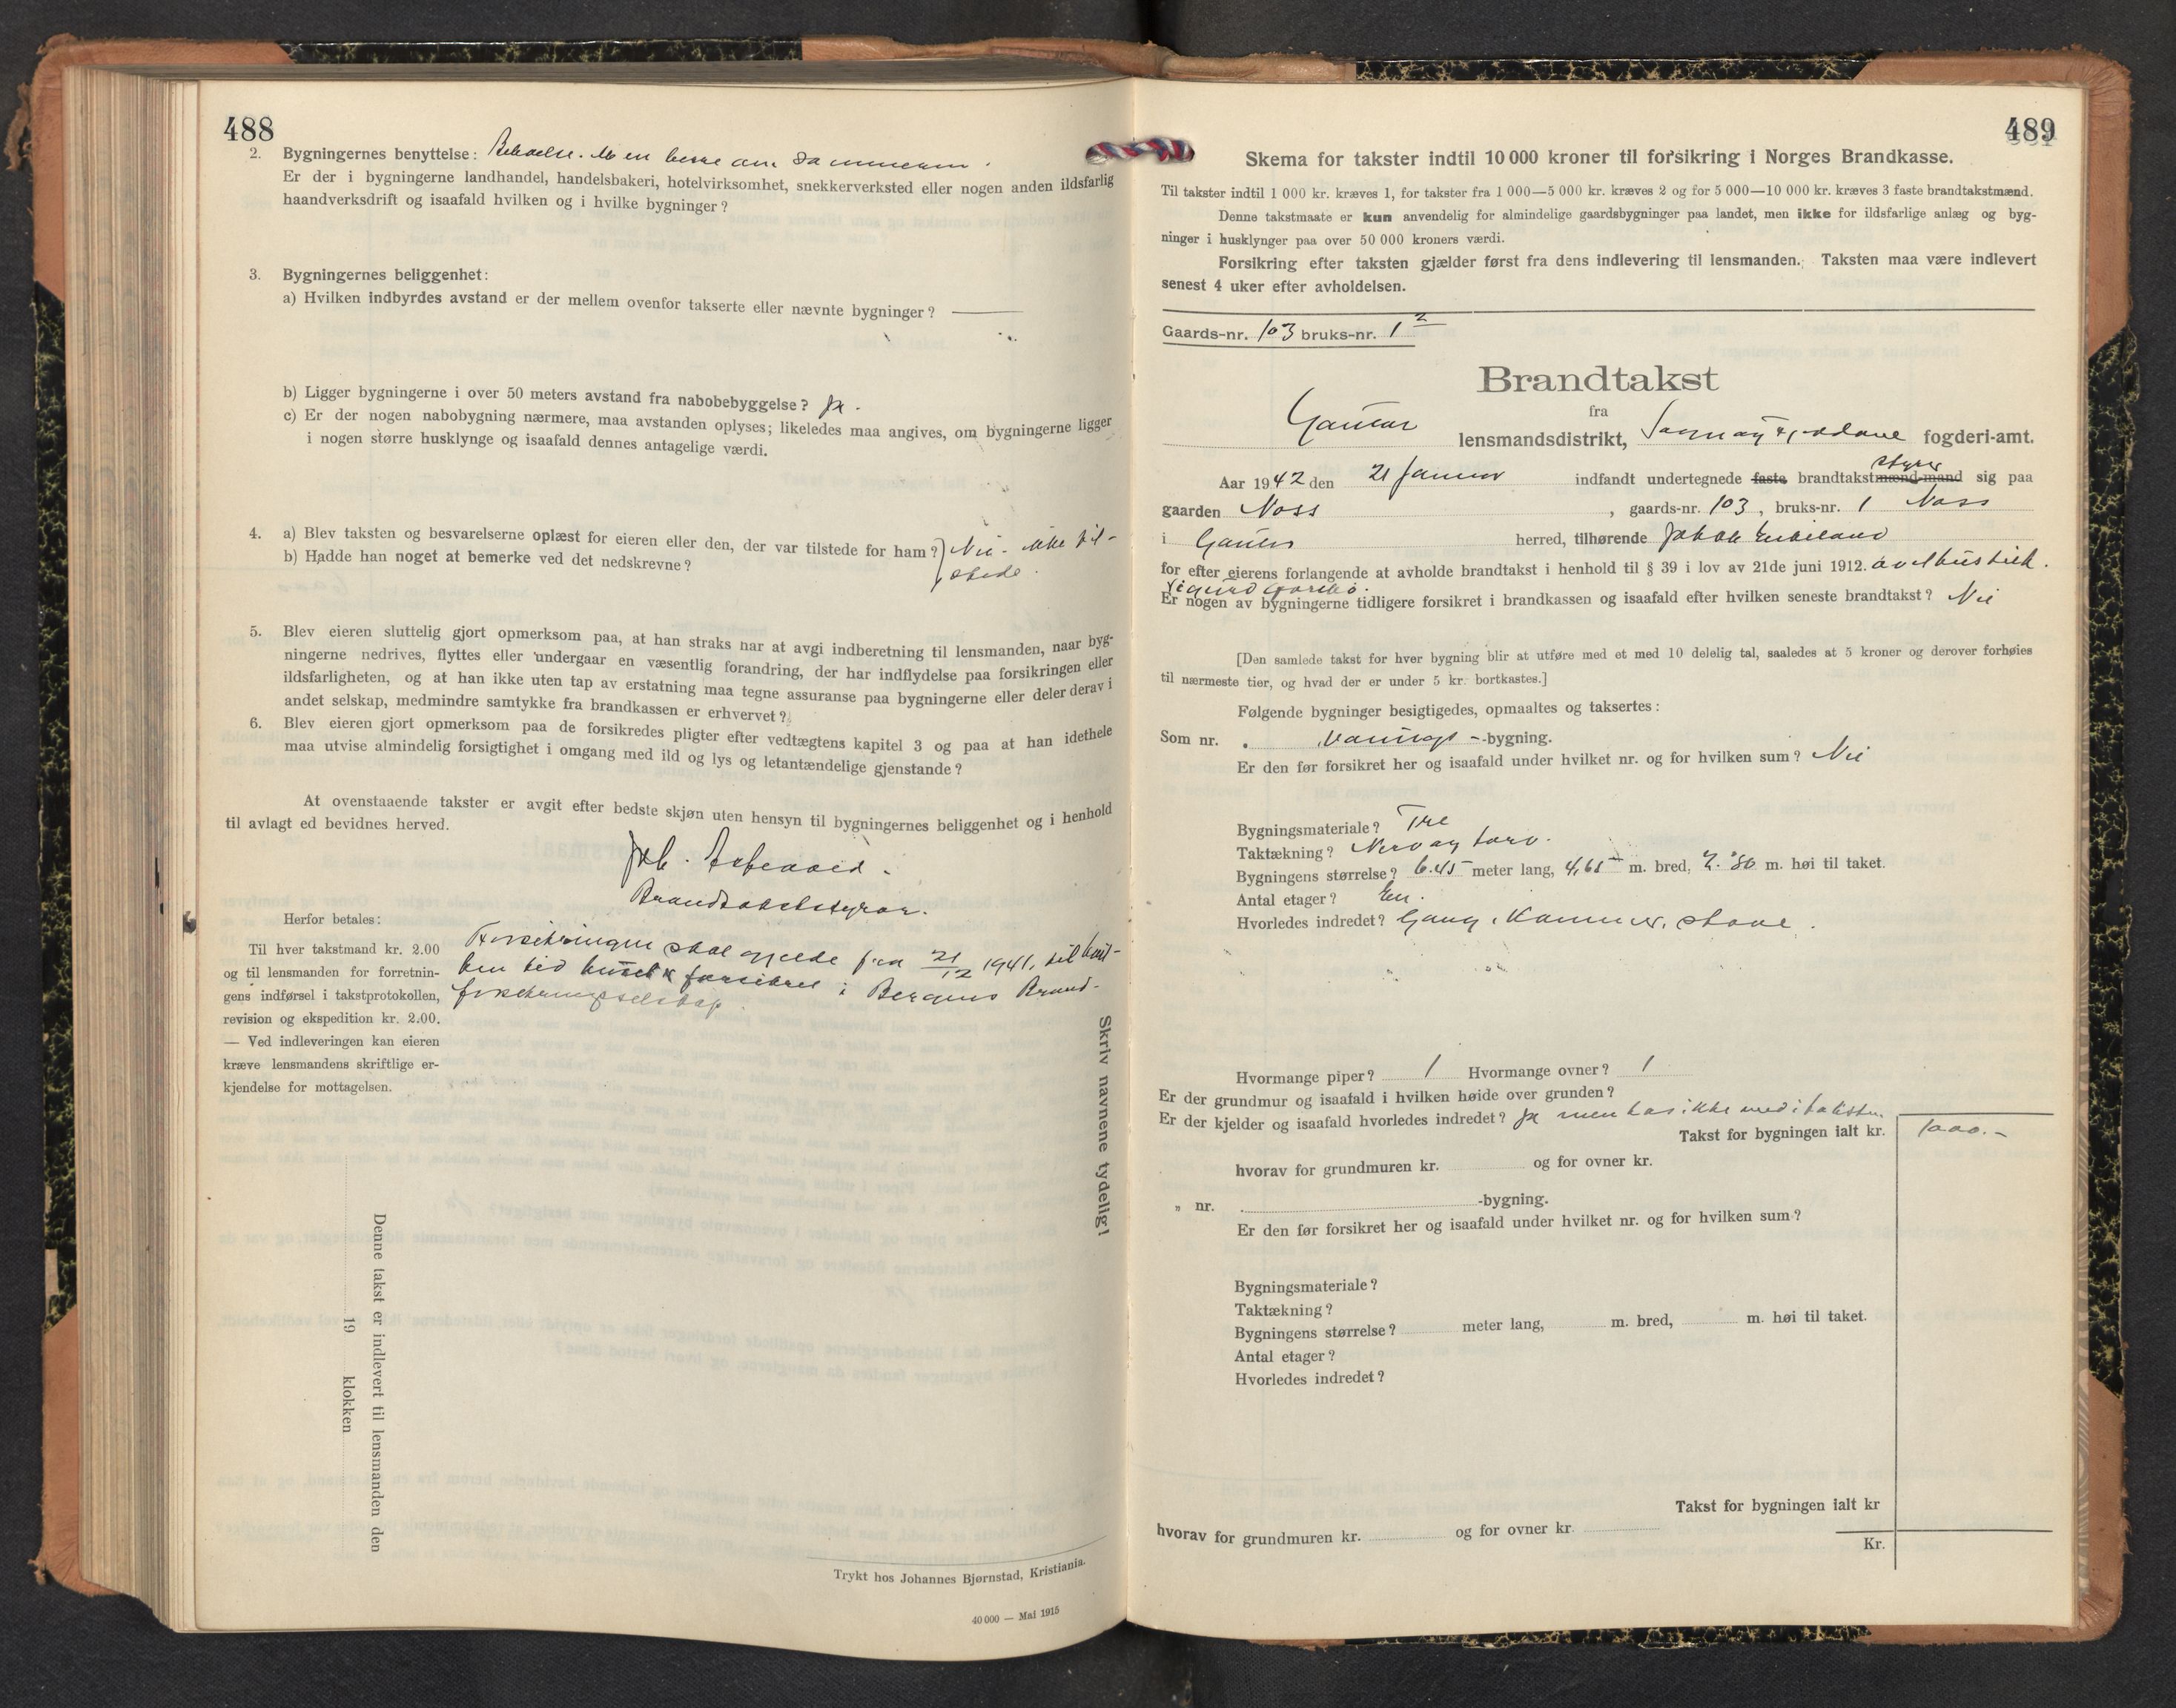 488
2. Bygningernes benyttelse:
Er der i bygningerne landhandel, handelsbakeri, hotelvirksomhet, snekkerverksted eller nogen anden ildsfarlig
haandverksdrift og isaafald hvilken og i hvilke bygninger?
3. Bygningernes beliggenhet:
a) Hvilken indbyrdes avstand er der mellem ovenfor takserte eller nævnte bygninger?
b) Ligger bygningerne i over 50 meters avstand fra nabobebyggelse? Ja.
c) Er der nogen nabobygning nærmere, maa avstanden oplyses; likeledes maa angives, om bygningerne ligger
i nogen større husklynge og isaafald dennes antagelige værdi.
4. a) Blev taksten og besvarelserne oplæst for eieren eller den, der var tilstede for ham? Nei - ikke til-
b) Hadde han noget at bemerke ved det nedskrevne? stede.
5. Blev eieren sluttelig gjort opmerksom paa, at han straks har at avgi indberetning til lensmanden, naar byg-
ningerne nedrives, flyttes eller undergaar en væsentlig forandring, der har indflydelse paa forsikringen eller
ildsfarligheten, og at han ikke uten tap av erstatning maa tegne assuranse paa bygningerne eller deler derav i
andet selskap, medmindre samtykke fra brandkassen er erhvervet?
6. Blev eieren gjort opmerksom paa de forsikredes pligter efter vedtægtens kapitel 3 og paa at han idethele
maa utvise almindelig forsigtighet i omgang med ild og lys og letantændelige gjenstande?
At ovenstaaende takster er avgit efter bedste skjøn uten hensyn til bygningernes beliggenhet og i henhold
til avlagt ed bevidnes herved.
Herfor betales:
Til hver takstmand kr. 2.00
og til lensmanden for forretnin-
gens indførsel i takstprotokollen,
revision og ekspedition kr. 2.00.
— Ved indleveringen kan eieren
kræve lensmandens skriftlige er-
kjendelse for mottagelsen.
Forsikringen skal gjelde fra 21/12 1941, til
ken tid huset forsikret i Bergens Brand-
forsikringsselskap
Skriv navnene tydelig!
Denne takst er indlevert til lensmanden den
19 klokken
Trykt hos Johannes Bjørnstad, Kristiania.
40 000 — Mai 1915
489
Skema for takster indtil 10 000 kroner til forsikring i Norges Brandkasse.
Til takster indtil 1 000 kr. kræves 1, for takster fra 1 000—5 000 kr. kræves 2 og for 5 000—10 000 kr. kræves 3 faste brandtakstmænd.
Denne takstmaate er kun anvendelig for almindelige gaardsbygninger paa landet, men ikke for ildsfarlige anlæg og byg-
ninger i husklynger paa over 50 000 kroners værdi.
Forsikring efter taksten gjælder først fra dens indlevering til lensmanden. Taksten maa være indlevert
senest 4 uker efter avholdelsen.
Gaards-nr. 103 bruks-nr. 1
Brandtakst
fra
Gaular lensmandsdistrikt, Sogn og Fjordane fogderi-amt.
styrer
Aar 1942 den 21 Januar indfandt undertegnede faste brandtakstmænd-mand sig paa
gaarden Noss, gaards-nr. 103, bruks-nr. 1 Noss
i Gaular herred, tilhørende Jakob
for efter eierens forlangende at avholde brandtakst i henhold til § 39 i lov av 21de juni 1912.
Sigurd
Er nogen av bygningerne tidligere forsikret i brandkassen og isaafald efter hvilken seneste brandtakst? Nei
[Den samlede takst for hver bygning blir at utføre med et med 10 delelig tal, saaledes at 5 kroner og derover forhøies
til nærmeste tier, og hvad der er under 5 kr. bortkastes.]
Følgende bygninger besigtigedes, opmaaltes og taksertes:
Som nr. Vaanings-bygning.
Er den før forsikret her og isaafald under hvilket nr. og for hvilken sum? Nei
Bygningsmateriale? Tre
Taktækning? Never og torv.
Bygningens størrelse? 6.45 meter lang, 4,65 m. bred, 2.80 m. høi til taket.
Antal etager? En.
Hvorledes indredet? Gang, Kammer, stove.
Hvormange piper? 1 Hvormange ovner? 1
Er der grundmur og isaafald i hvilken høide over grunden?
Er der kjelder og isaafald hvorledes indredet? Ja men tas ikke med i taksten.
Takst for bygningen ialt kr. 1000.-
hvorav for grundmuren kr. og for ovner kr.
„ nr. -bygning.
Er den før forsikret her og isaafald under hvilket nr. og for hvilken sum?
Bygningsmateriale?
Taktækning?
Bygningens størrelse? meter lang, m. bred, m. høi til taket.
Antal etager?
Hvorledes indredet?
Takst for bygningen ialt kr
hvorav for grundmuren kr. og for ovner kr.
Kr.